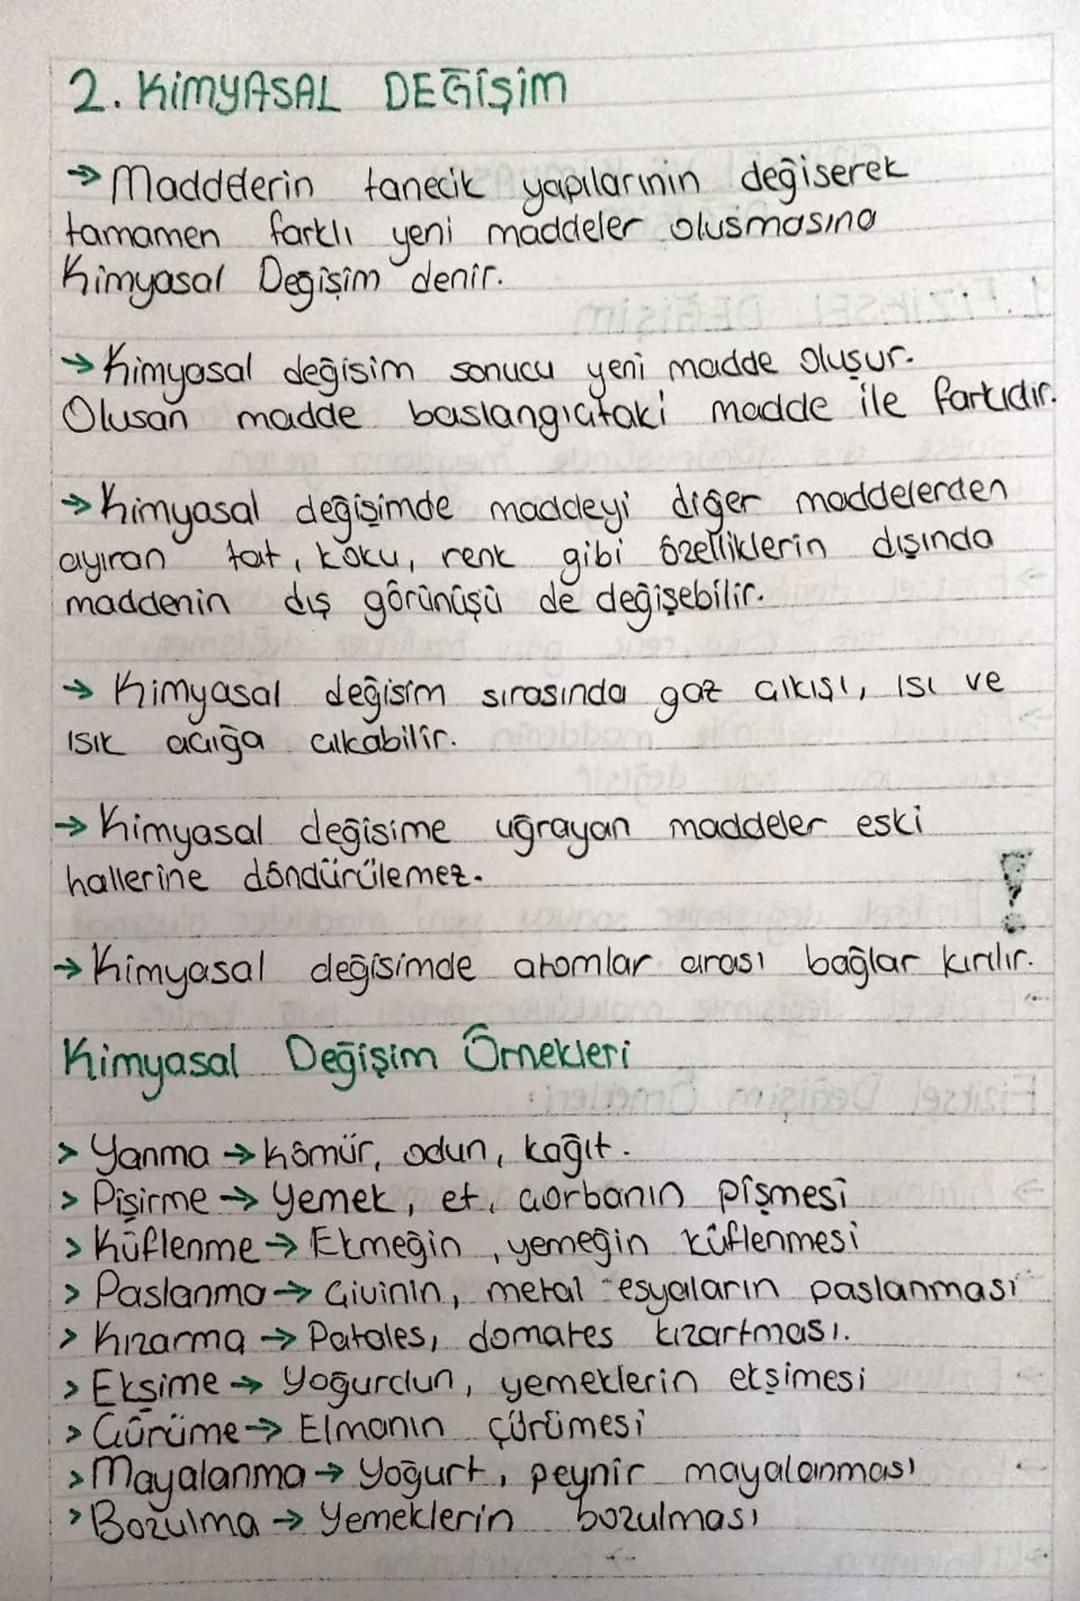 2. KİMYASAL DEĞİŞİM
→ Maddelerin tanecik yapılarının değiserek
tamamen farklı yeni maddeler olusmasına
Kimyasal Değişim denir.
→ Kimyasal değisim sonucu yeni madde oluşur.
Olusan madde baslangıçtaki madde ile farklıdır.
→ Kimyasal değişimde maddeyi diğer maddelerden
ayıran tat, koku, renk gibi özelliklerin dışında
maddenin dış görünüşü de değişebilir.
→ Kimyasal değisim sırasında gaz çıkışı, ısı ve
ısık açığa çıkabilir.
→ Kimyasal değisime uğrayan maddeler eski
hallerine döndürülemez.
→ Kimyasal değisimde atomlar arası bağlar kırılır.
Kimyasal Değişim Örnekleri
> Yanma → Kömür, odun, kağıt.
> Pişirme → Yemek, et, çorbanın pişmesi
> Küflenme → Ekmeğin, yemeğin küflenmesi
> Paslanma → Çivinin, metal esyaların paslanması
> Kızarma → Patates, domates kızartması.
> Ekşime → Yoğurdun, yemeklerin ekşimesi
> Çürüme → Elmanın çürümesi
> Mayalanma → Yoğurt, peynir mayalanması
> Bozulma → Yemeklerin bozulması